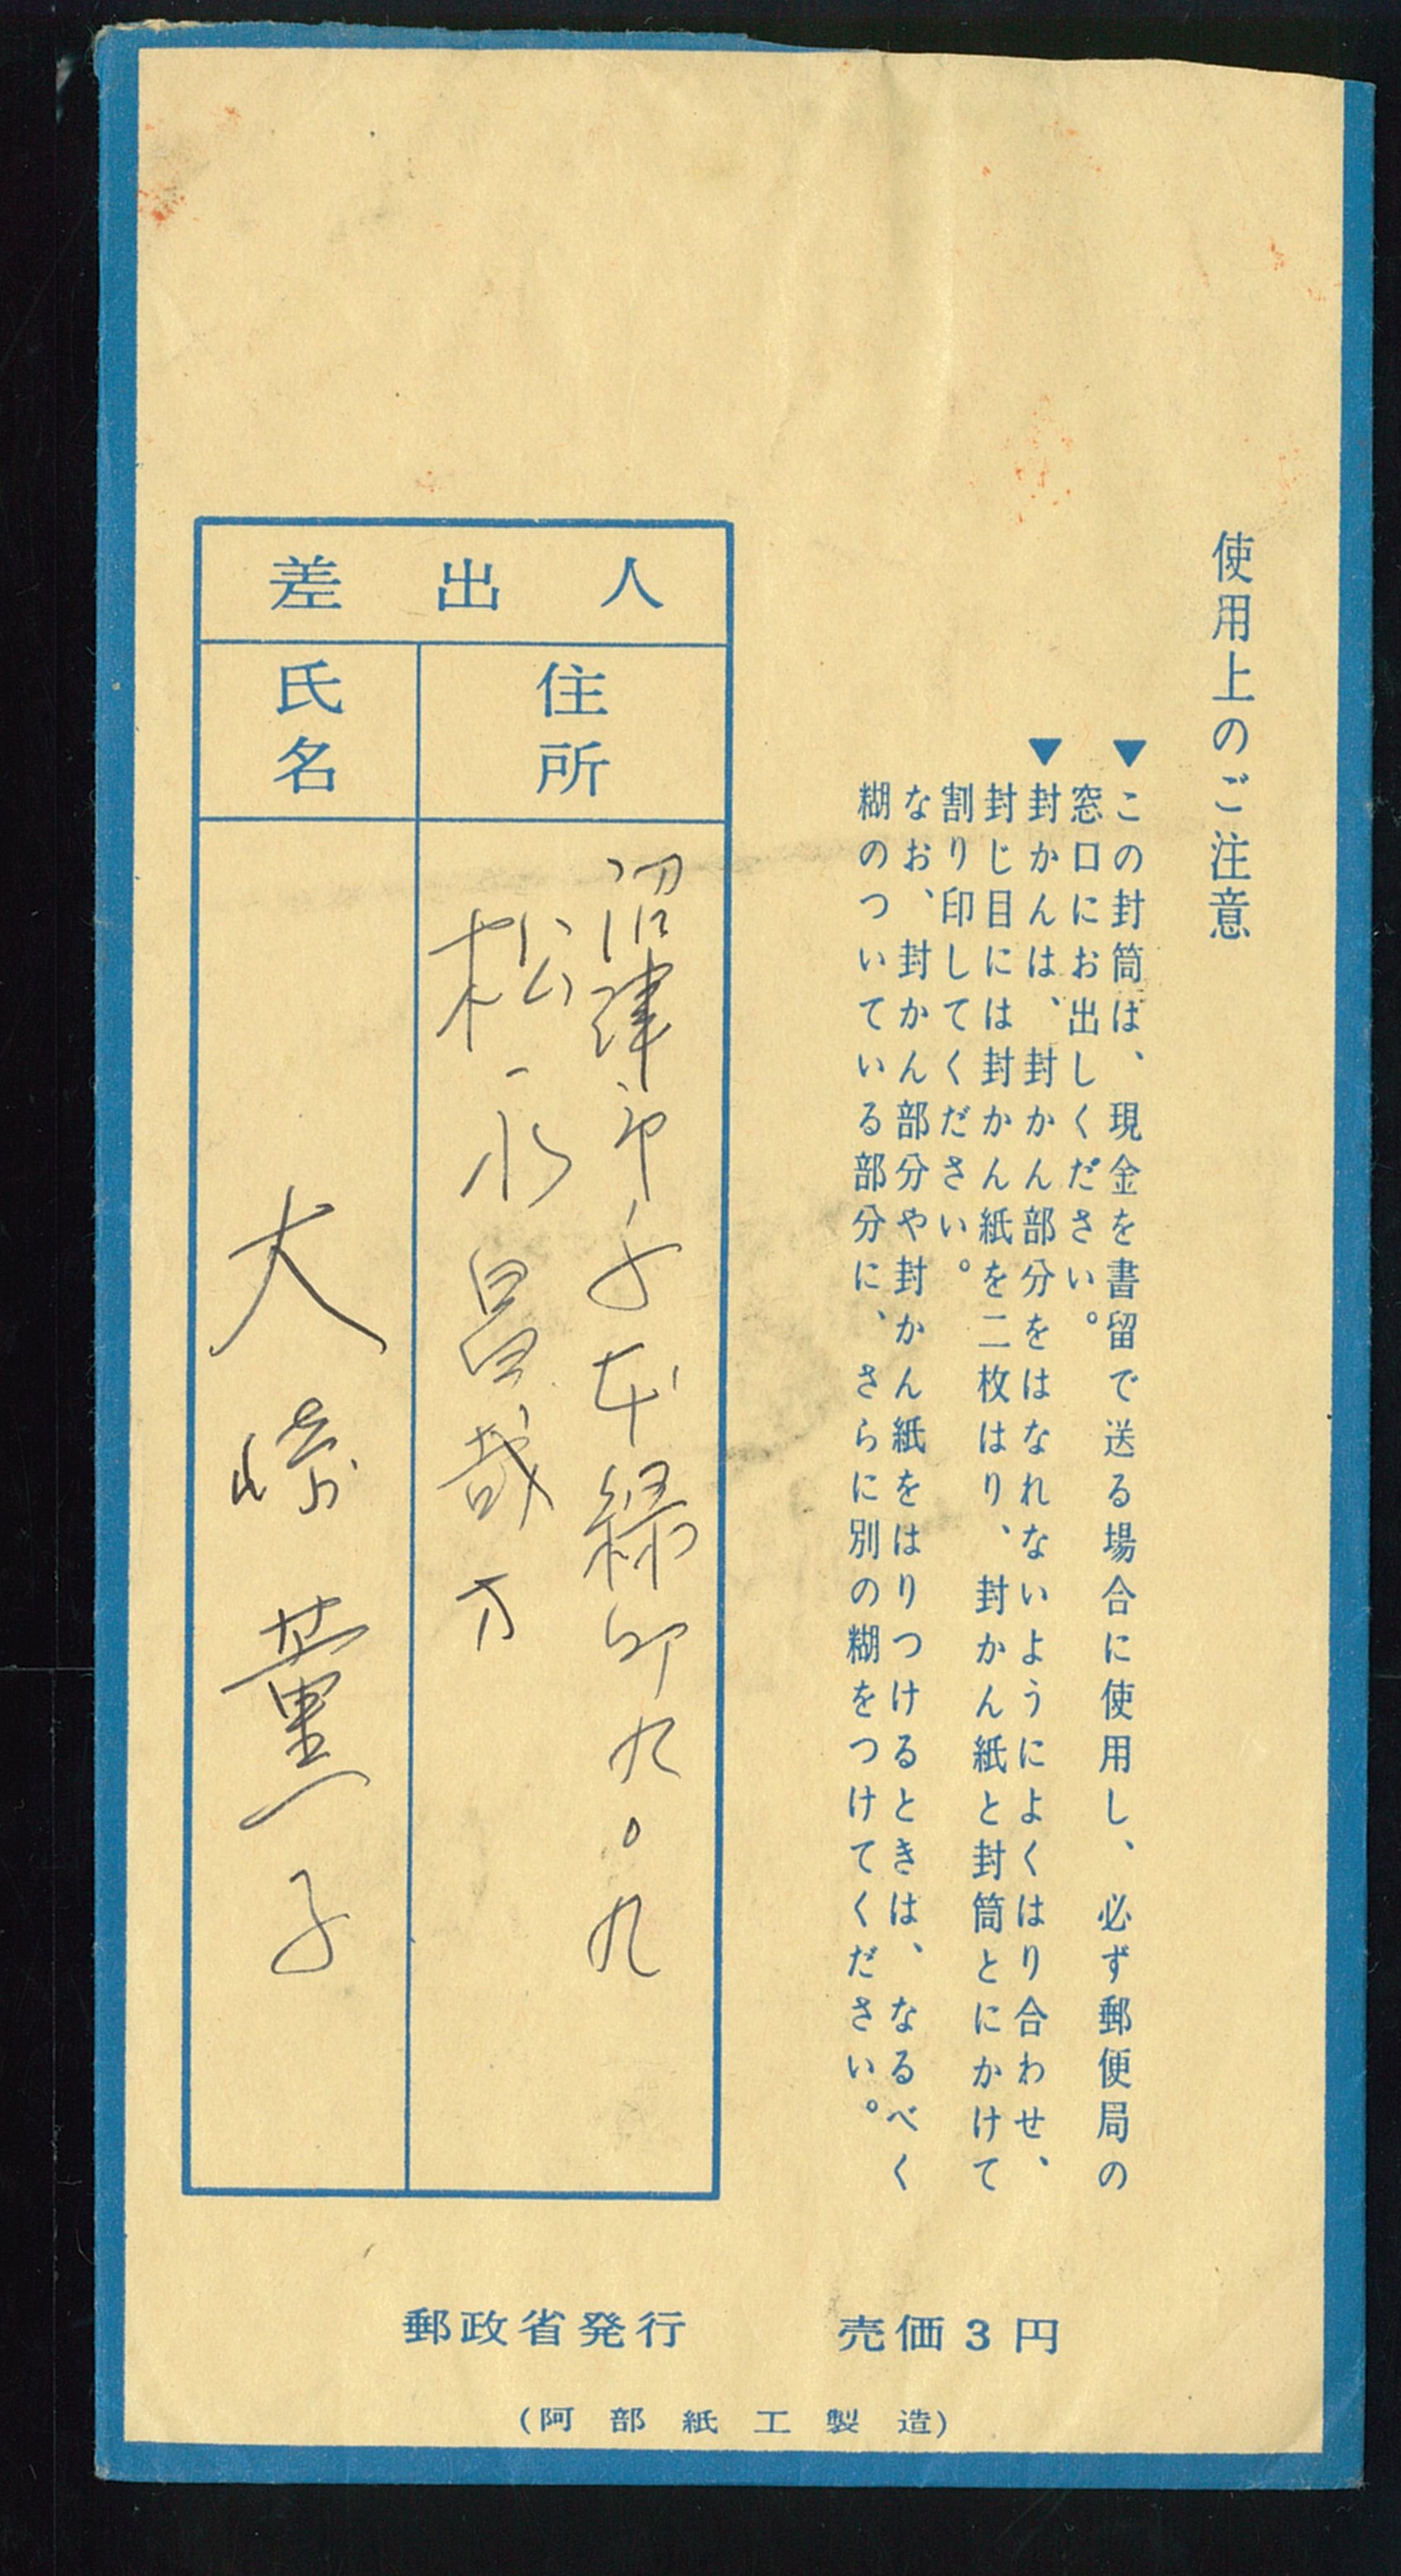 使用上のご注意
▼この封筒は、現金を書留で送る場合に使用し、必ず郵便局の
窓口にお出しください。
▼封かんは、封かん部分をはなれないようによくはり合わせ、
封じ目には封かん紙を二枚はり、封かん紙と封筒とにかけて
割り印してください。
なお、封かん部分や封かん紙をはりつけるときは、なるべく
糊のついている部分に、さらに別の糊をつけてください。
差出人
住所
沼津市千本緑町九〇九
松永昌哉方
氏名
大嶋薫子
売価3円
郵政省発行
(阿部紙工製造)